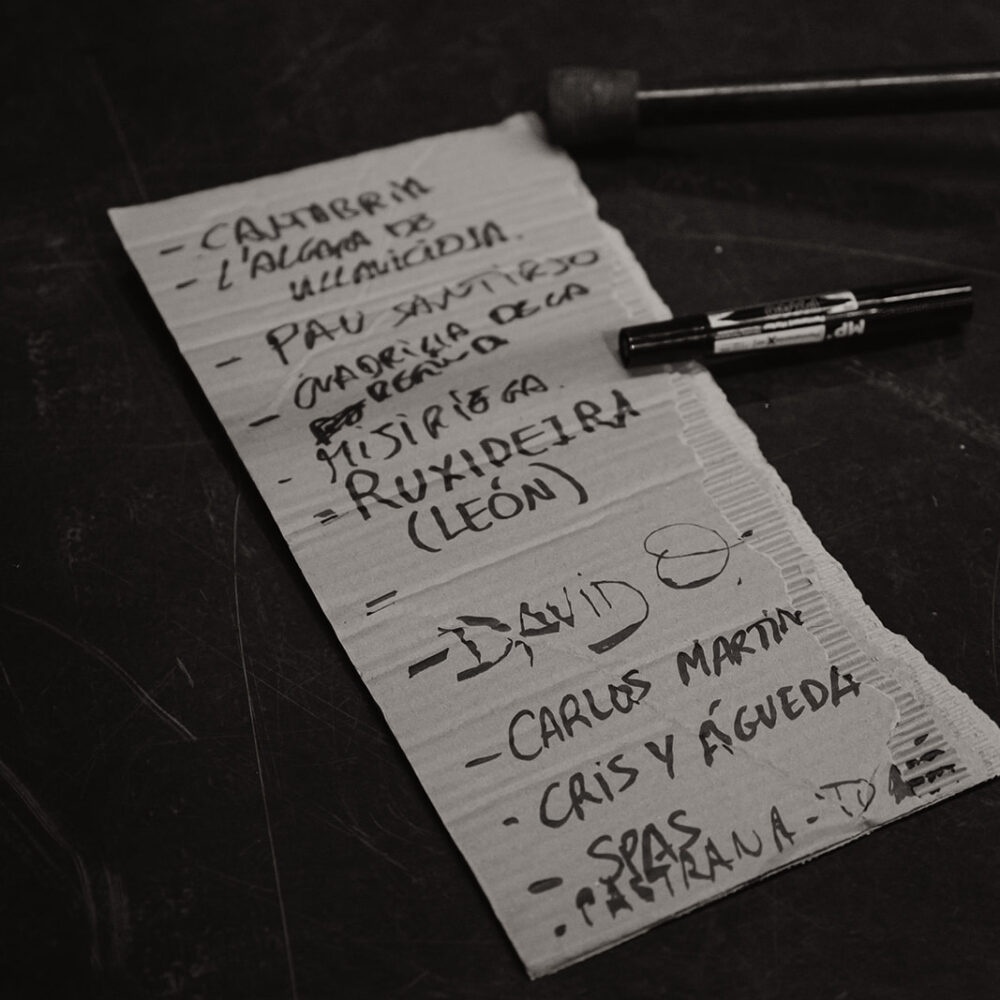 - CANTABRIA
- L'ALGARA DE
VILLAVICIOSA.
- PAU SANTIRSO
- CUADRILLA DE LA
MISIRIEGA.
= RUXIDEIRA
(LEÓN)
=
- DAVID
- CARLOS MARTÍN
- CRIS Y ÁGUEDA
- SPAS
- PASTRANA -
MP.